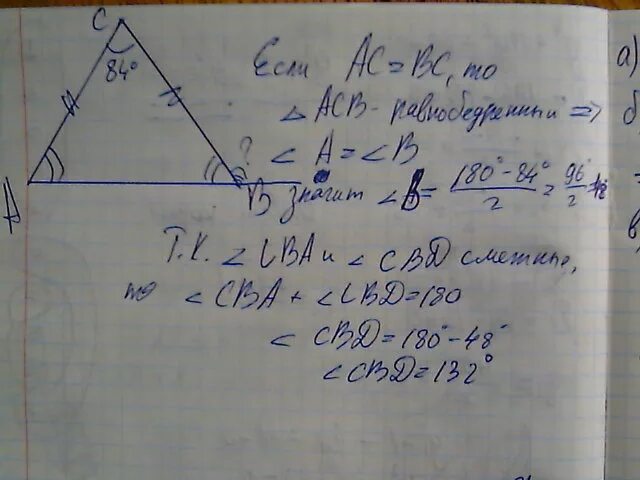 C
84°
Если AC = BC, то
△ ACB - равнобедренный =>
? ∠ A = ∠ B
A
B значит ∠ B = (180° - 84°)/2 = 96°/2 =
Т.К. ∠ CBA и ∠ CBD смежные,
то ∠ CBA + ∠ CBD = 180
∠ CBD = 180° - 48°
∠ CBD = 132°
а)
б
в